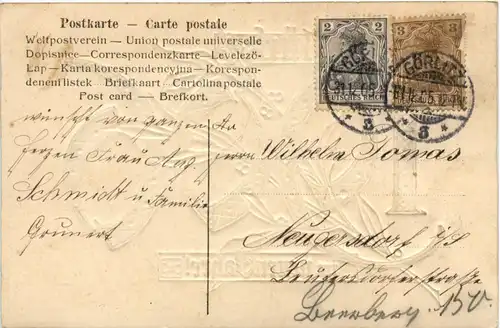 Postkarte — Carte postale
Weltpostverein — Union postale universelle
Dopisnice — Correspondenzkarte — Levelező-
Lap — Karta korespondencyjna — Korespon-
denčni listek — Briefkaart — Cartolina postale
Post card — Brefkort.
2 2
DEUTSCHES REICH
3 3
GÖRLITZ
31.12.05
* 3 *
wünscht von ganzen
Herzen Frau Aug.
Schmidt u Familie
Grunert
An
Herrn Wilhelm Tomas
Neugersdorf i/S
Leutersdorferstraße
Beerberg 150.